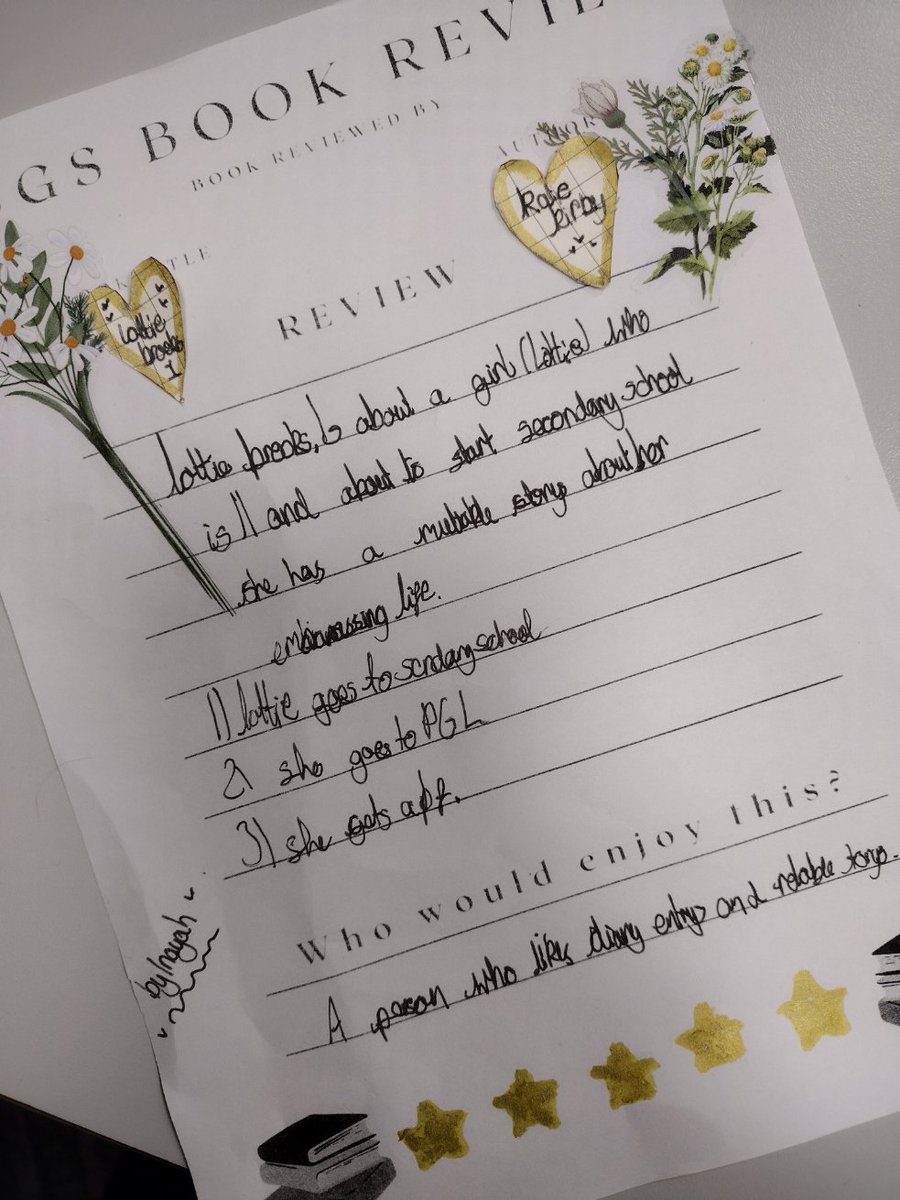 GS BOOK REVIE
BOOK REVIEWED BY
AUTHOR
Katie
Kirby
TITLE
lottie
brooks
1
REVIEW
lottie brooks, Is about a girl (lottie) who
is 11 and about to start secondary school
she has a story about her
embarrassing life.
1) lottie goes to scndary school
2 she goes to PGL
3) she gets a bf.
Who would enjoy this?
A person who likes diary entrys and relable
by hayah